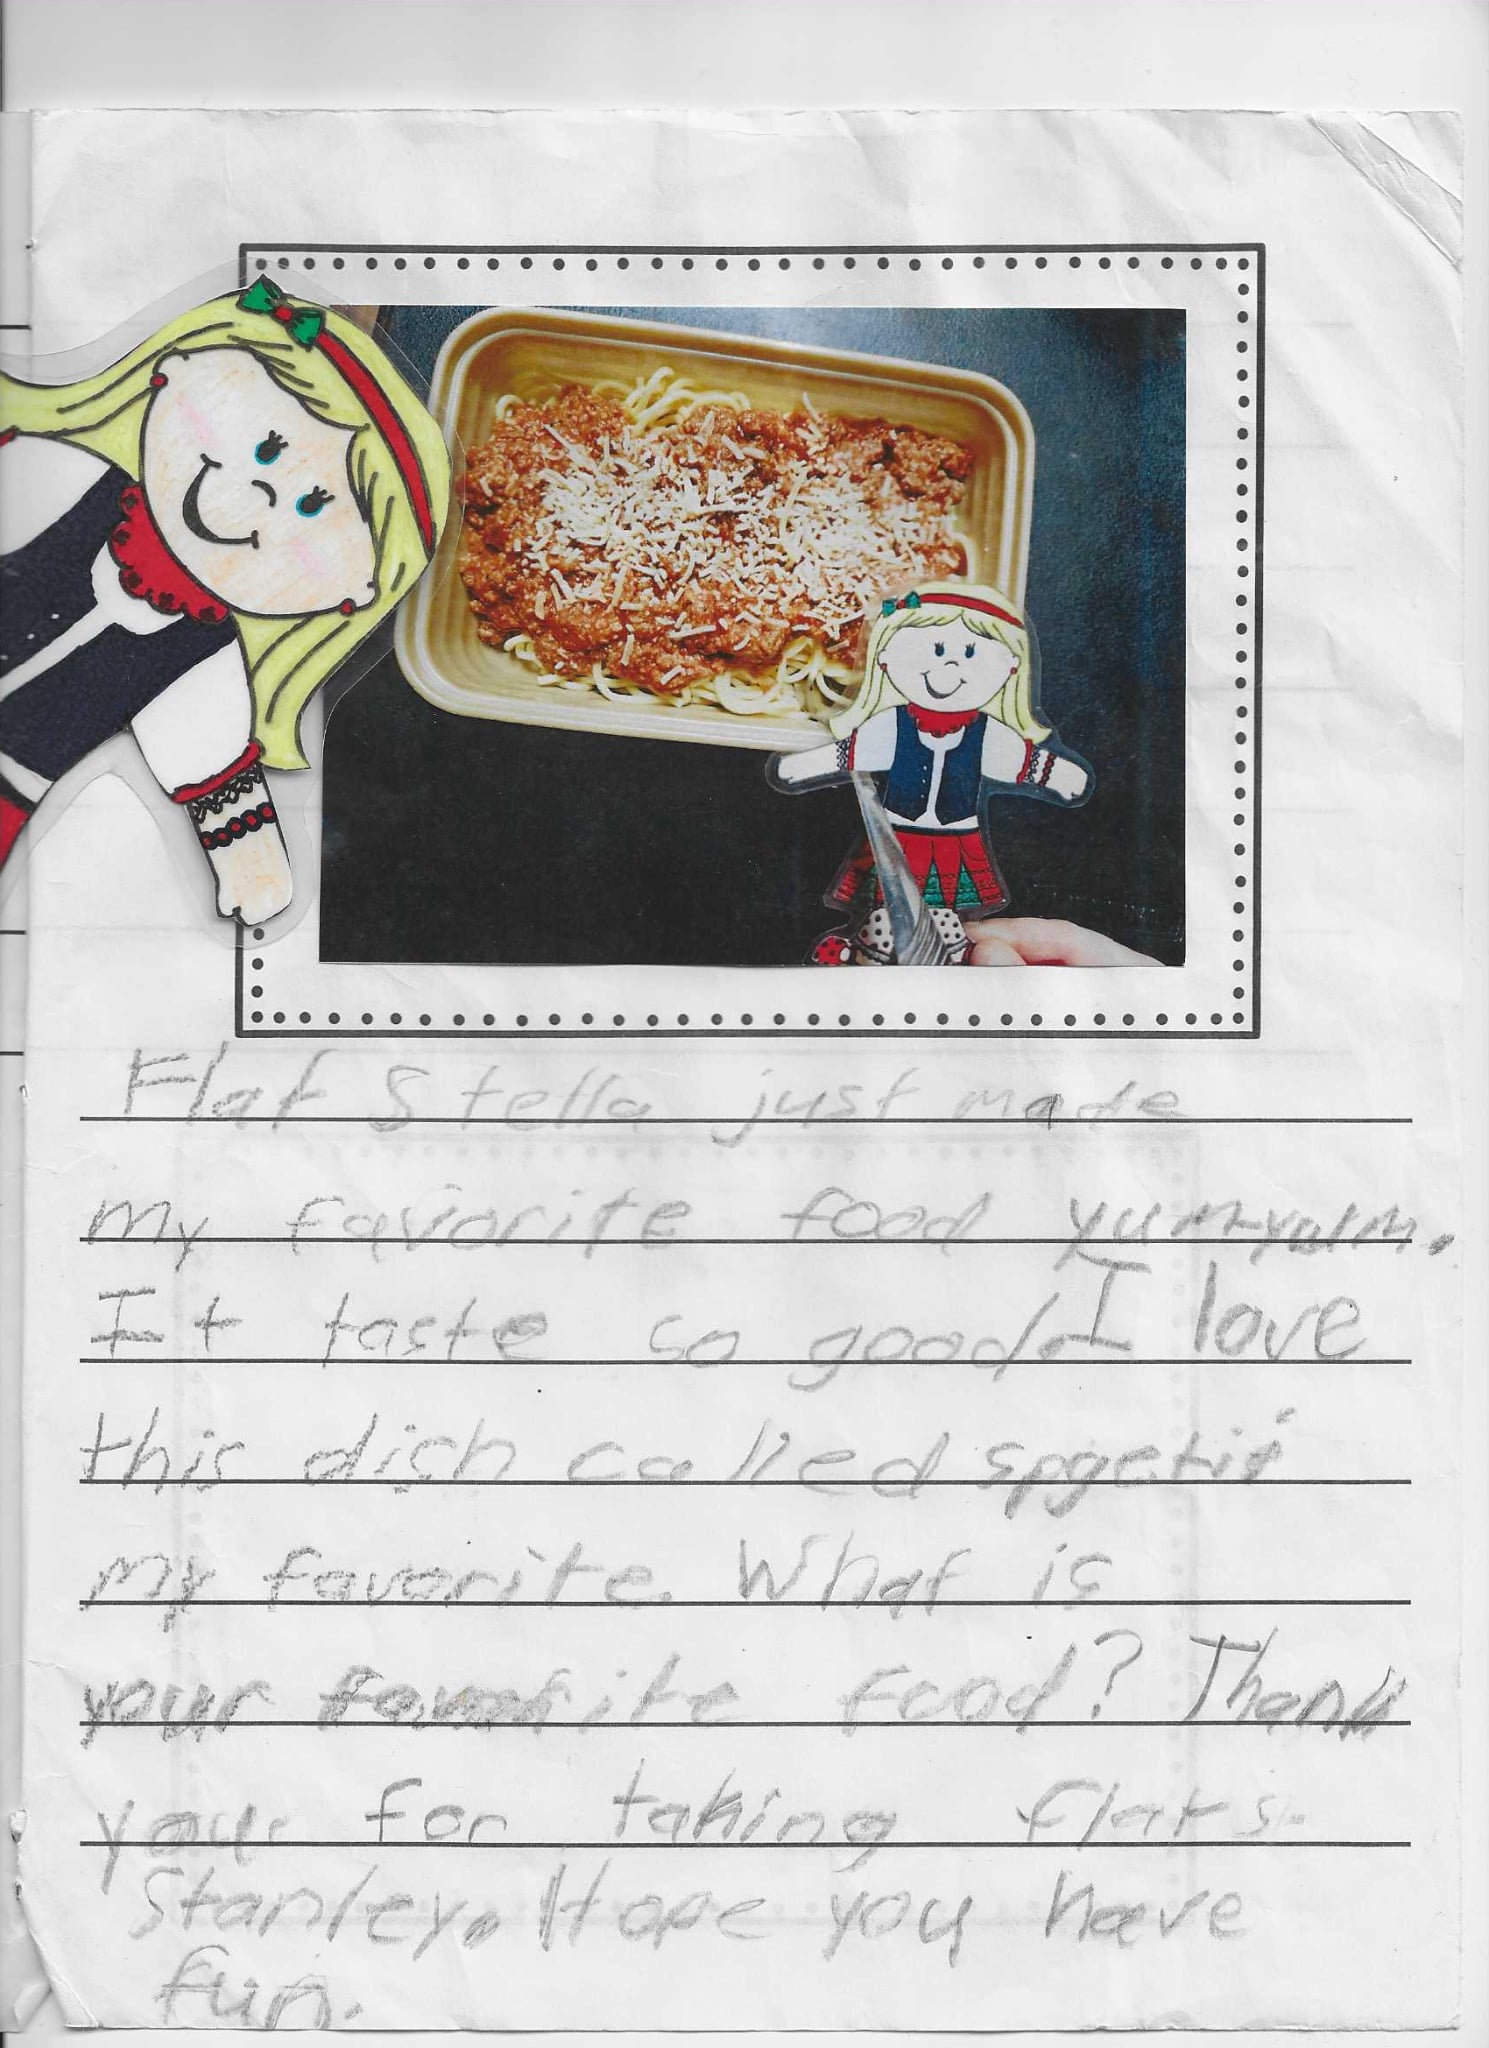 Flat Stella just made
my favorite food yum-yum.
It taste so good. I love
this dish called spgetii
my favorite. What is
your favorite food? Thank
you for taking flat s.
Stanley. Hope you have
fun.